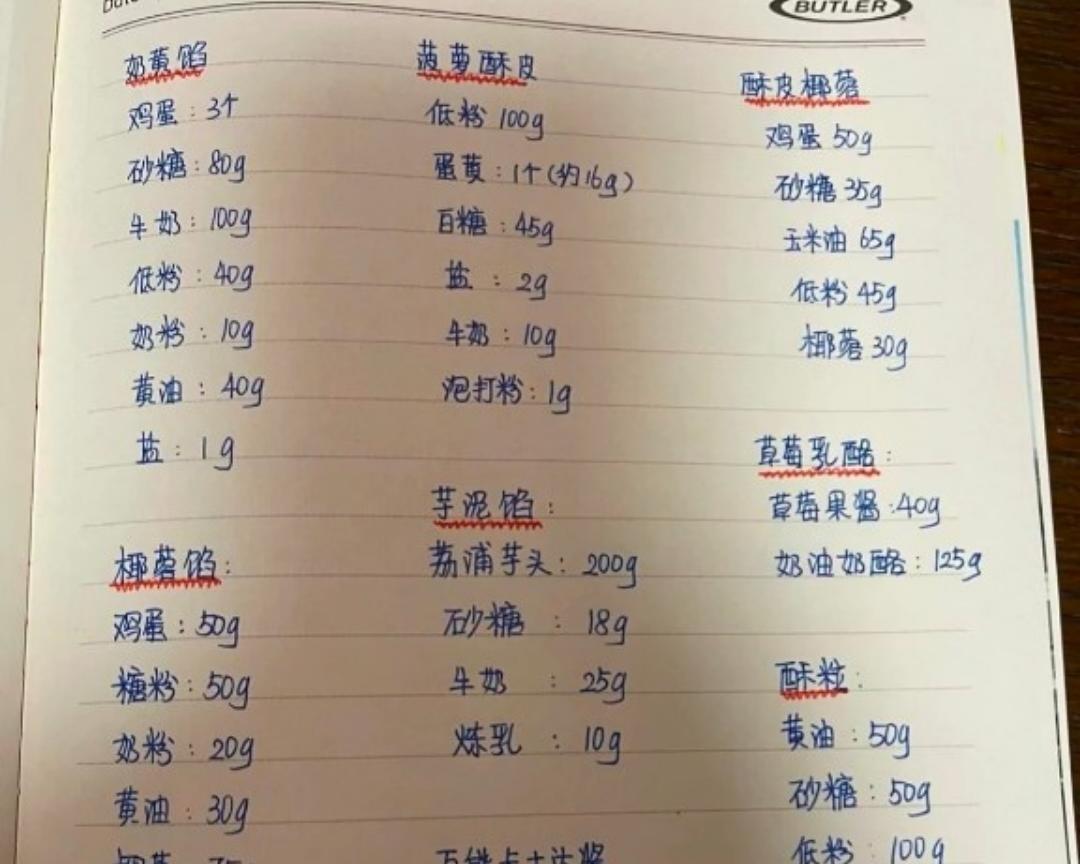 BUTLER
奶黄馅
鸡蛋：3个
砂糖：80g
牛奶：100g
低粉：40g
奶粉：10g
黄油：40g
盐：1g
椰蓉馅：
鸡蛋：50g
糖粉：50g
奶粉：20g
黄油：30g
菠萝酥皮
低粉 100g
蛋黄：1个(约16g)
白糖：45g
盐：2g
牛奶：10g
泡打粉：1g
芋泥馅：
荔浦芋头：200g
砂糖：18g
牛奶：25g
炼乳：10g
酥皮椰蓉
鸡蛋 50g
砂糖 35g
玉米油 65g
低粉 45g
椰蓉 30g
草莓乳酪：
草莓果酱：40g
奶油奶酪：125g
酥粒：
黄油：50g
砂糖：50g
低粉：100g